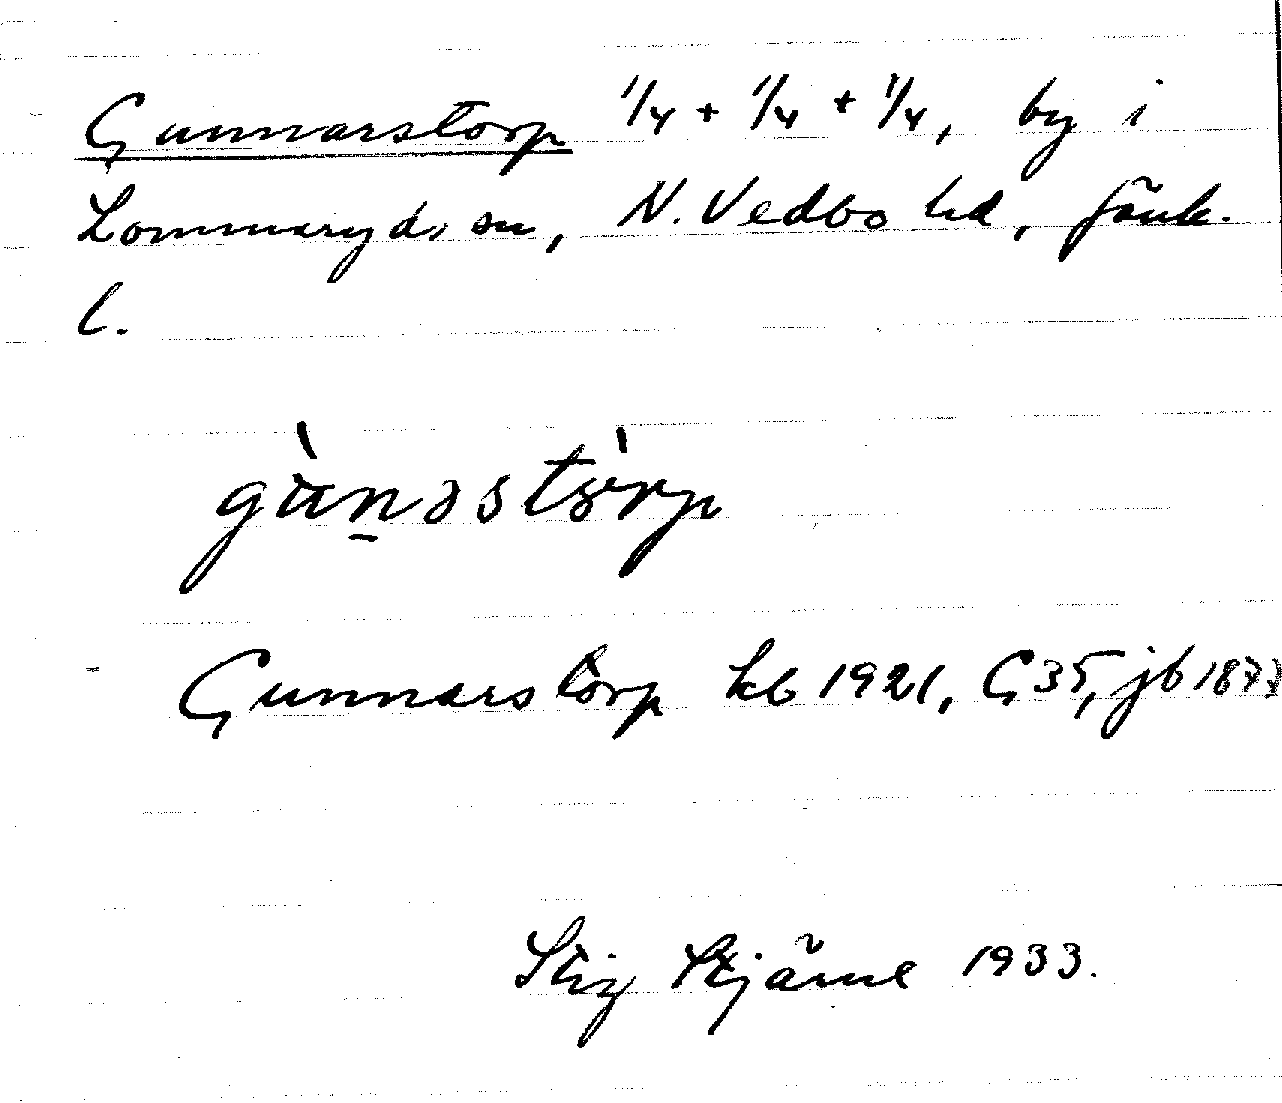 Gunnarstorp 1/4 + 1/4 + 1/4, by i
Lommaryds sn, N. Vedbo hd, Jönk.
l.
gùn̠əstòrp
Gunnarstorp kb 1921, G35, jb 1877
Stig Stjärne 1933.